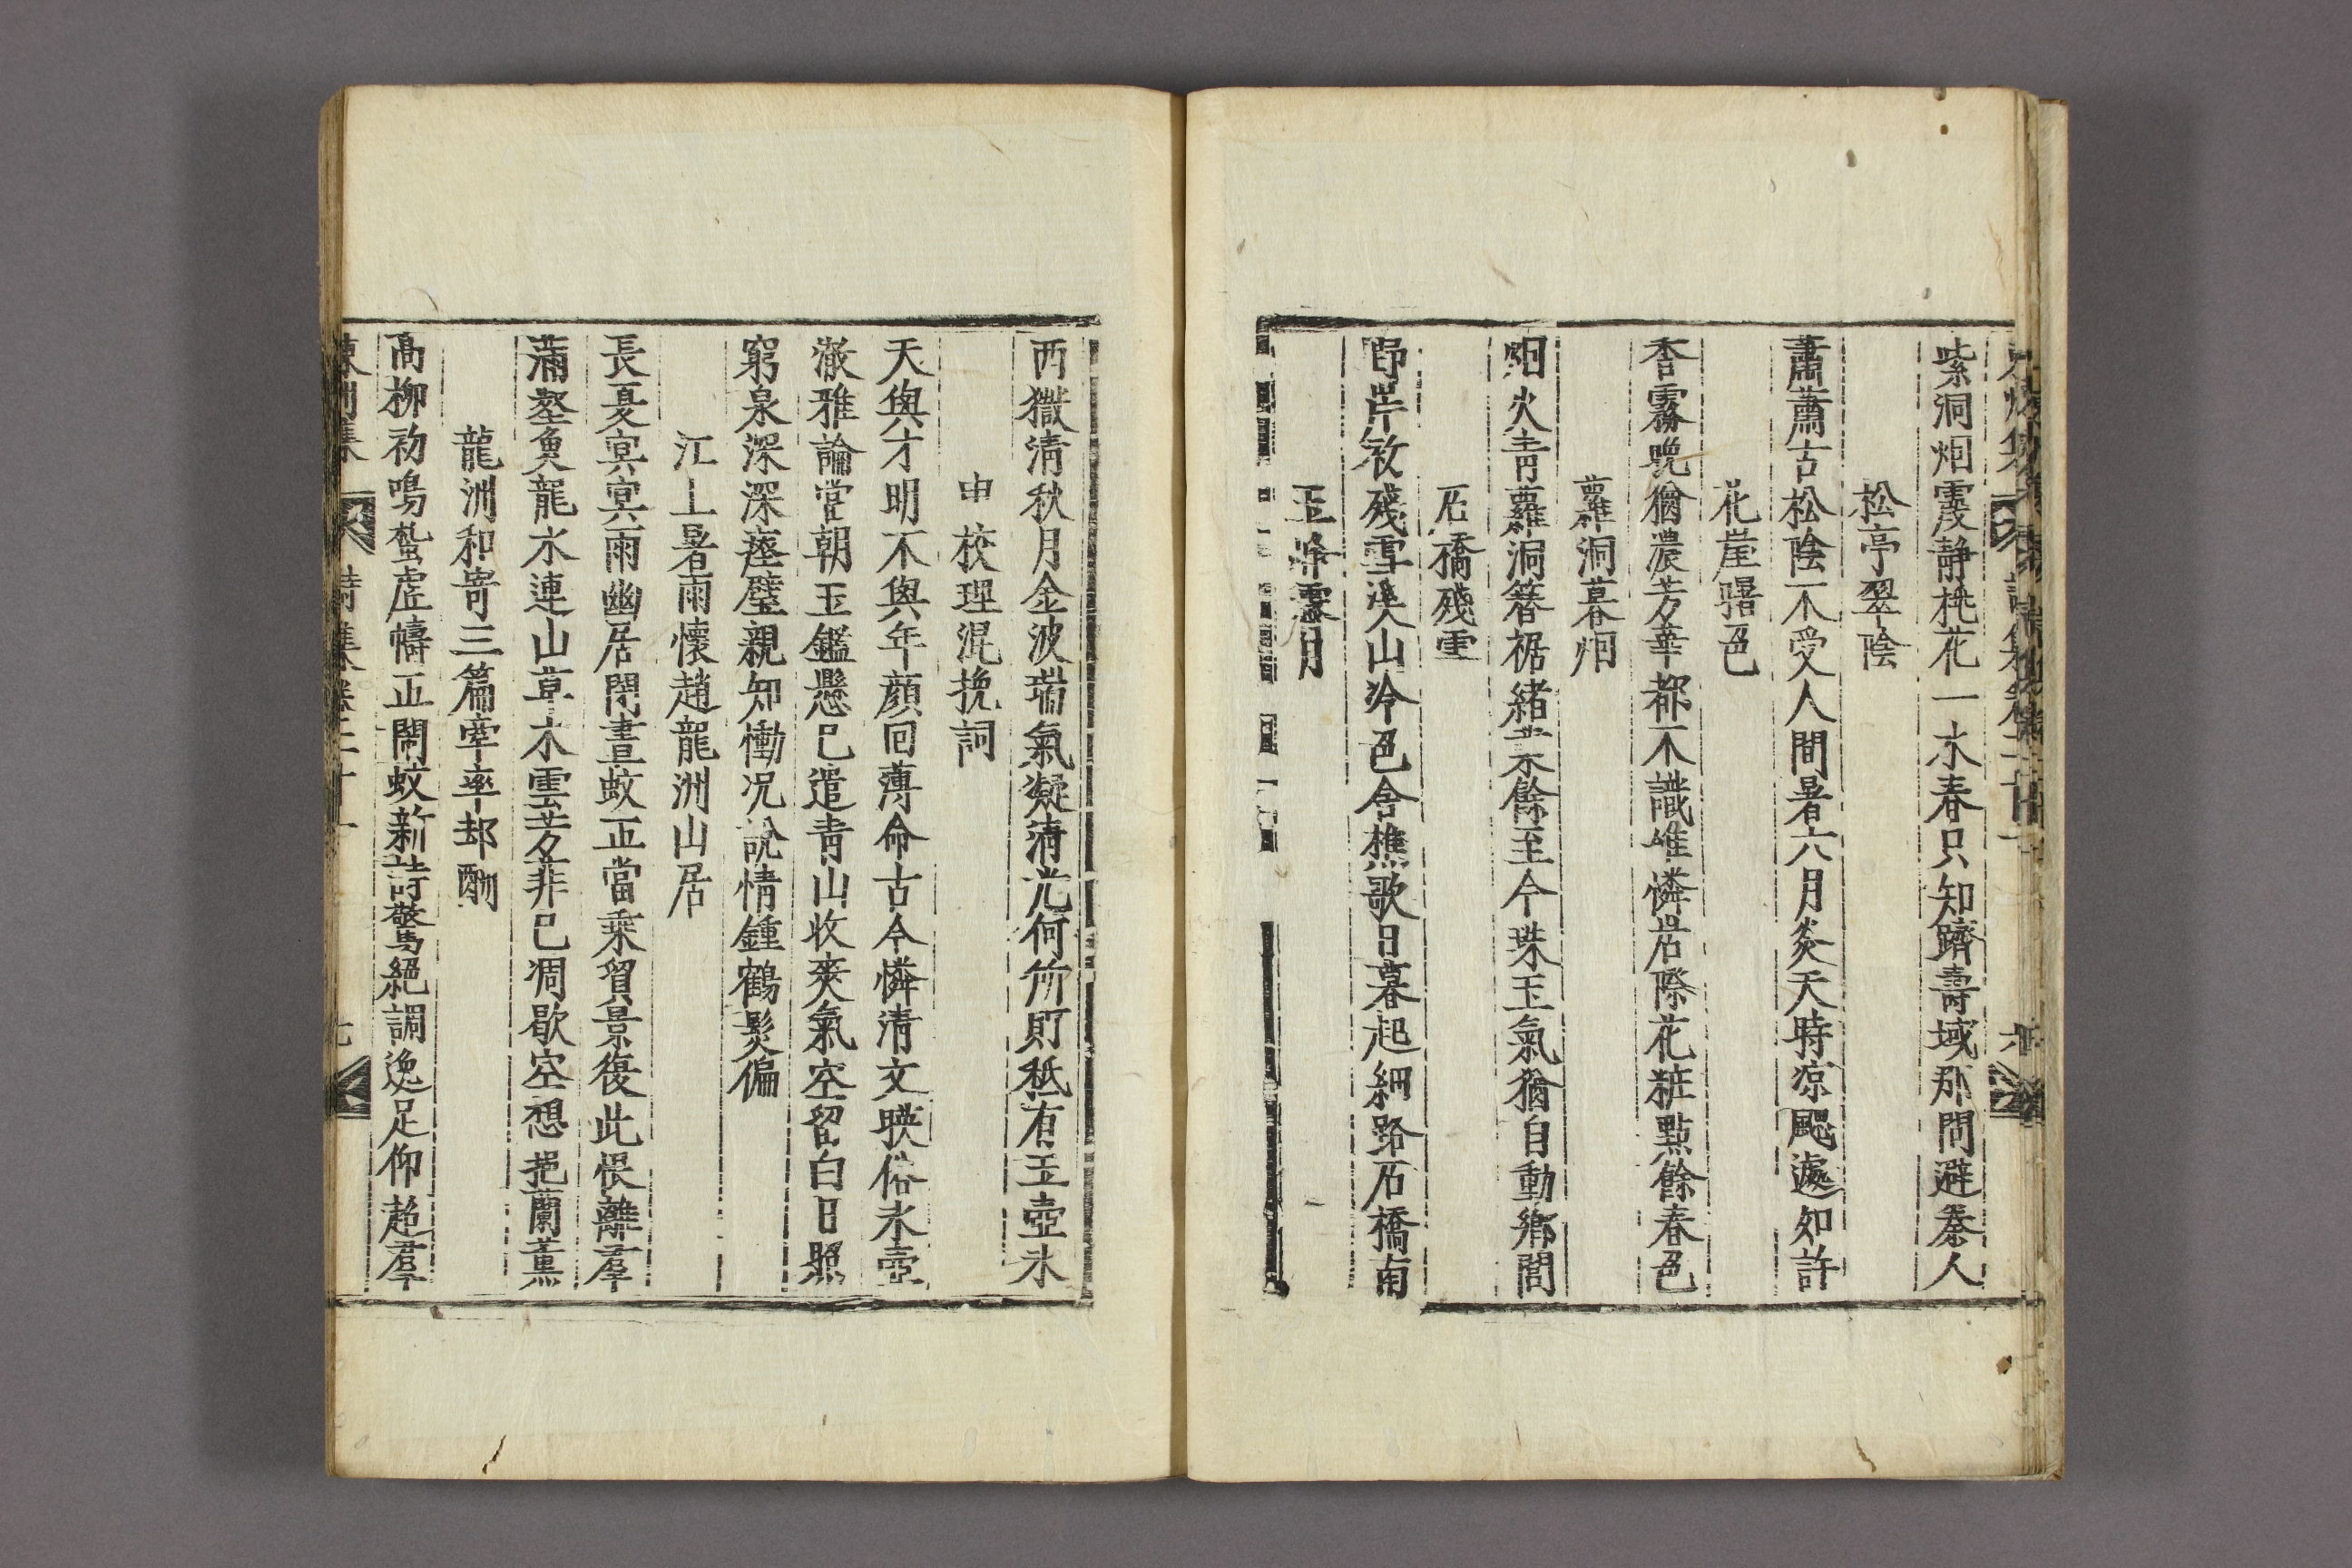 紫洞烟霞静桃花一水春只知躋壽域那問避秦人
松亭翠陰
蕭蕭古松陰不受人間暑六月炎天時凉颸處如許
花崖曙色
杳霧曉猶濃芳華都不識唯憐岩際花粧點餘春色
蘿洞暮烟
烟火青蘿洞簪裾緒業餘至今珠玉氣猶自動鄉閭
石橋殘雪
野岸初殘雪溪山冷色含樵歌日暮起細路石橋南
玉峰霽月
西嶽淸秋月金波瑞氣凝淸光何所貯秪有玉壺氷
申校理混挽詞
天與才明不與年顔回薄命古今憐淸文暎俗氷壺
澈雅論當朝玉鑑懸已遣靑山收爽氣空留白日照
窮泉深深瘞璧親知慟况說情鍾鶴髮偏
江上暑雨懷趙龍洲山居
長夏冥冥雨幽居閉晝蚊正當乘貿景復此恨離羣
滿壑魚龍水連山草木雲芳菲已凋歇空想挹蘭薰
龍洲和寄三篇牽率却酬
高柳初鳴蜇虛幬正鬧蚊新詩驚絕調逸足仰超羣
東州集 詩集卷之十一 七